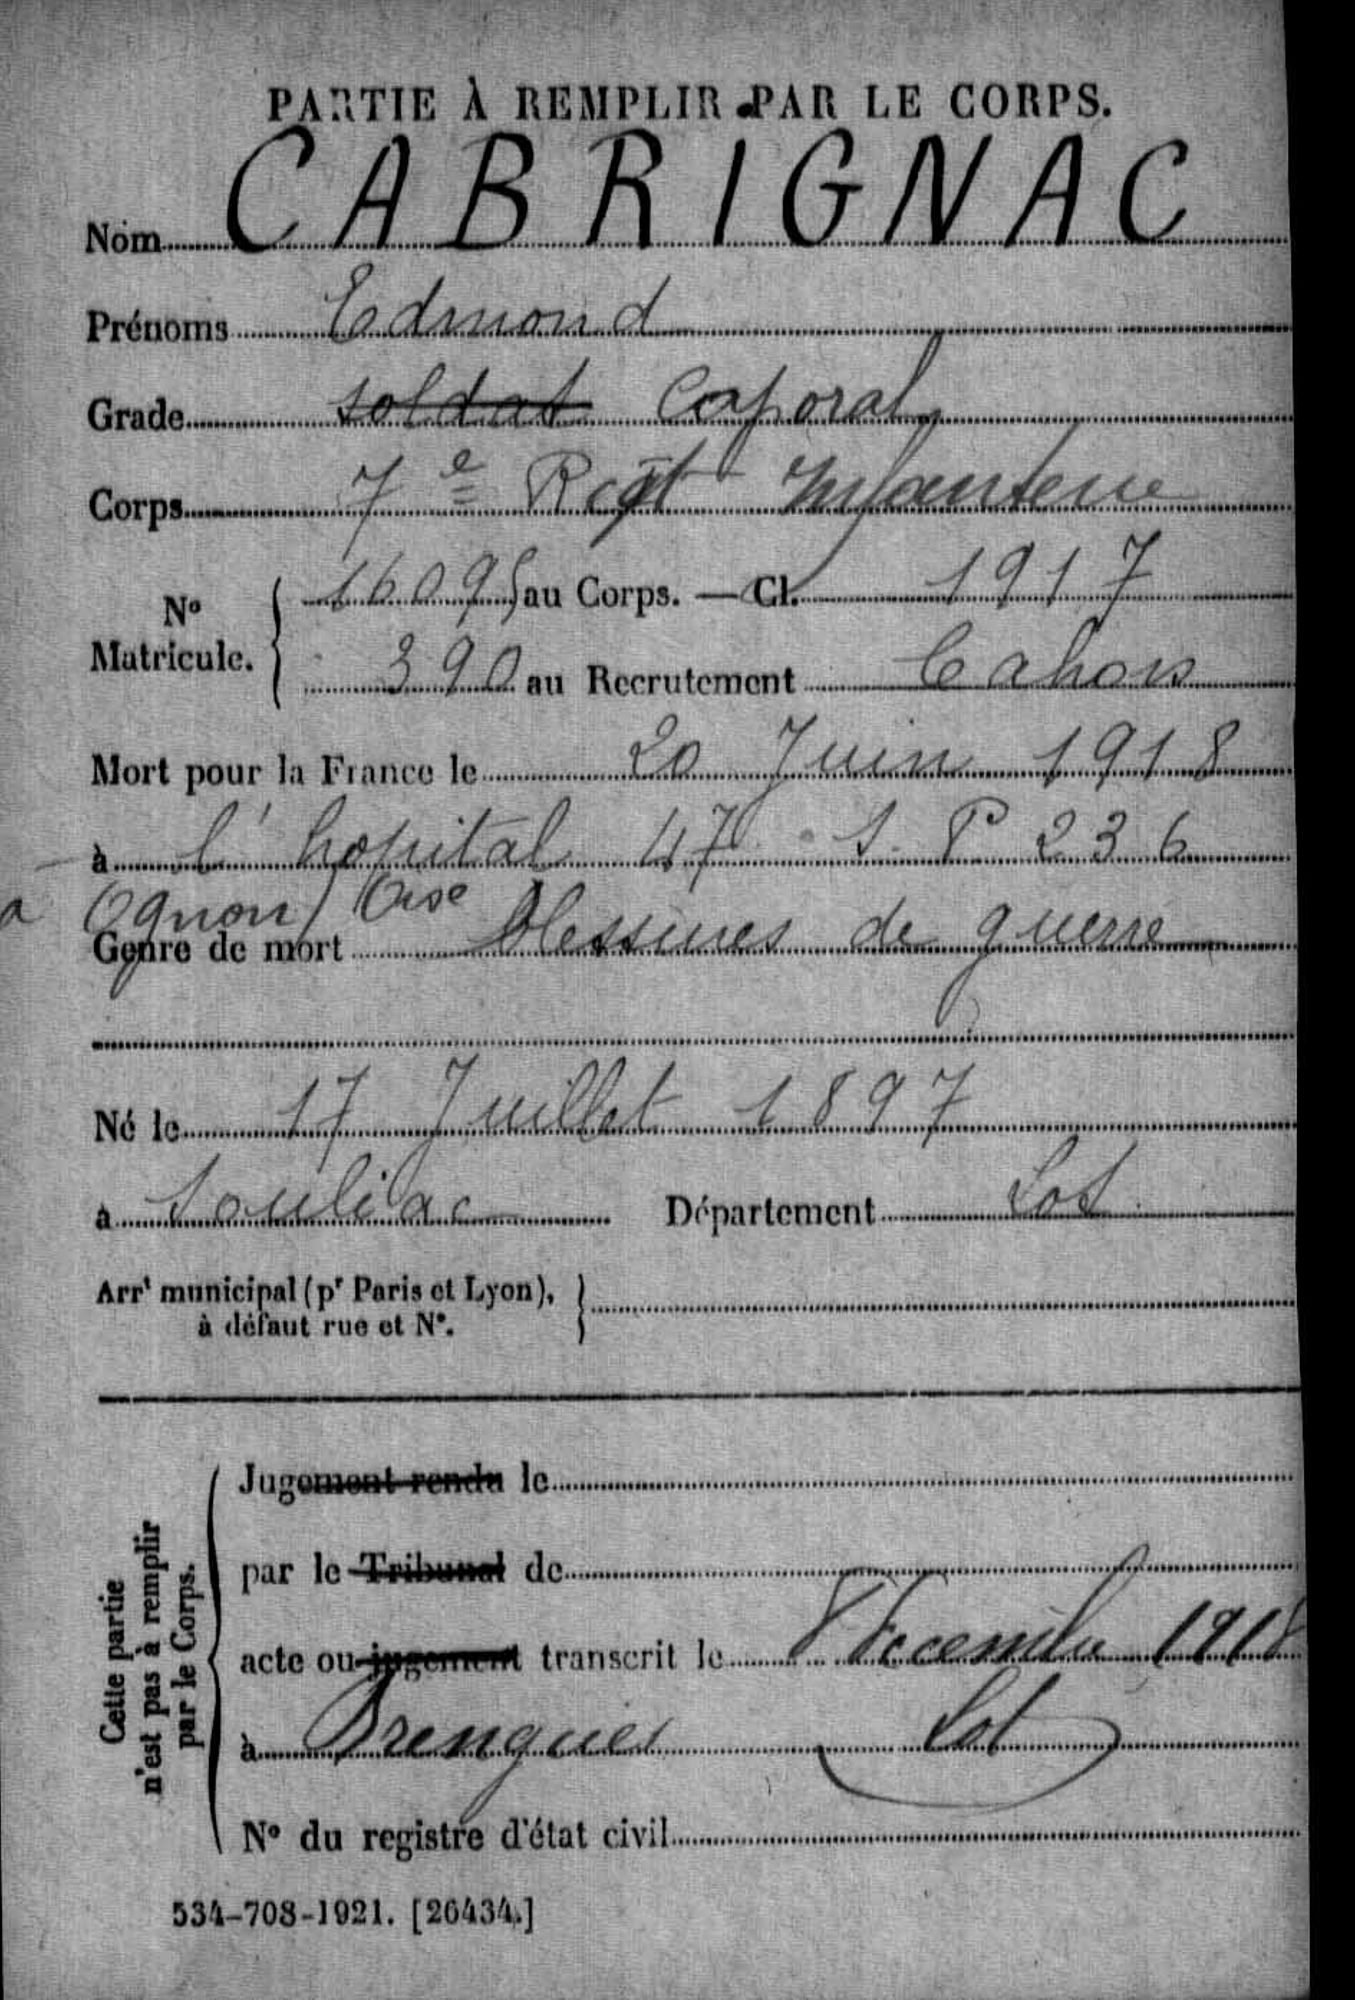 PARTIE À REMPLIR PAR LE CORPS.
Nom CABRIGNAC
Prénoms Edmond
Grade soldat Caporal
Corps 7e Regt Infanterie
No Matricule. 16095 au Corps. — Cl. 1917
390 au Recrutement Cahors
Mort pour la France le 20 Juin 1918
à l'hopital 47 S. P 236
a Ognon / Oise
Genre de mort blessures de guerre
Né le 17 Juillet 1897
à Souliac Département Lot
Arrt municipal (pr Paris et Lyon),
à défaut rue et No.
Cette partie
n'est pas à remplir
par le Corps.
Jugement rendu le
par le Tribunal de
acte ou jugement transcrit le 8 Décembre 1918
à Brengues Lot
No du registre d'état civil
534-708-1921. [26434.]